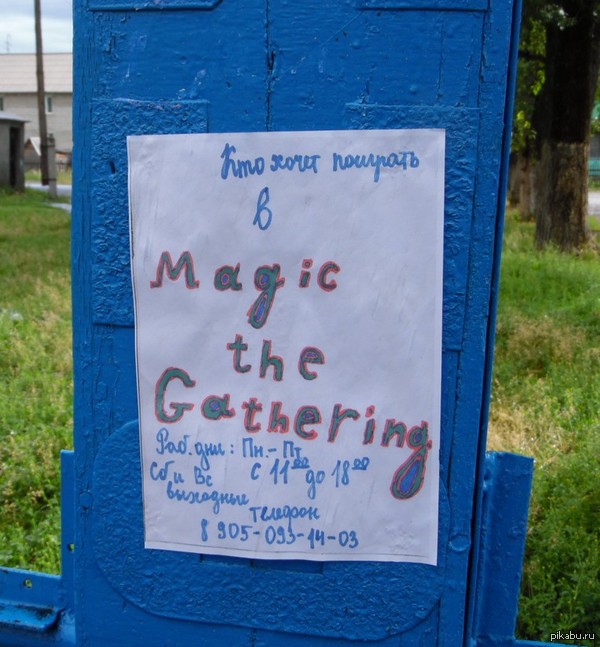 Кто хочет поиграть
в
Magic
the
Gathering
Раб. дни: Пн.-Пт
с 11⁰⁰ до 18⁰⁰
Сб и Вс
выходные
телефон
8 905-093-14-03
pikabu.ru